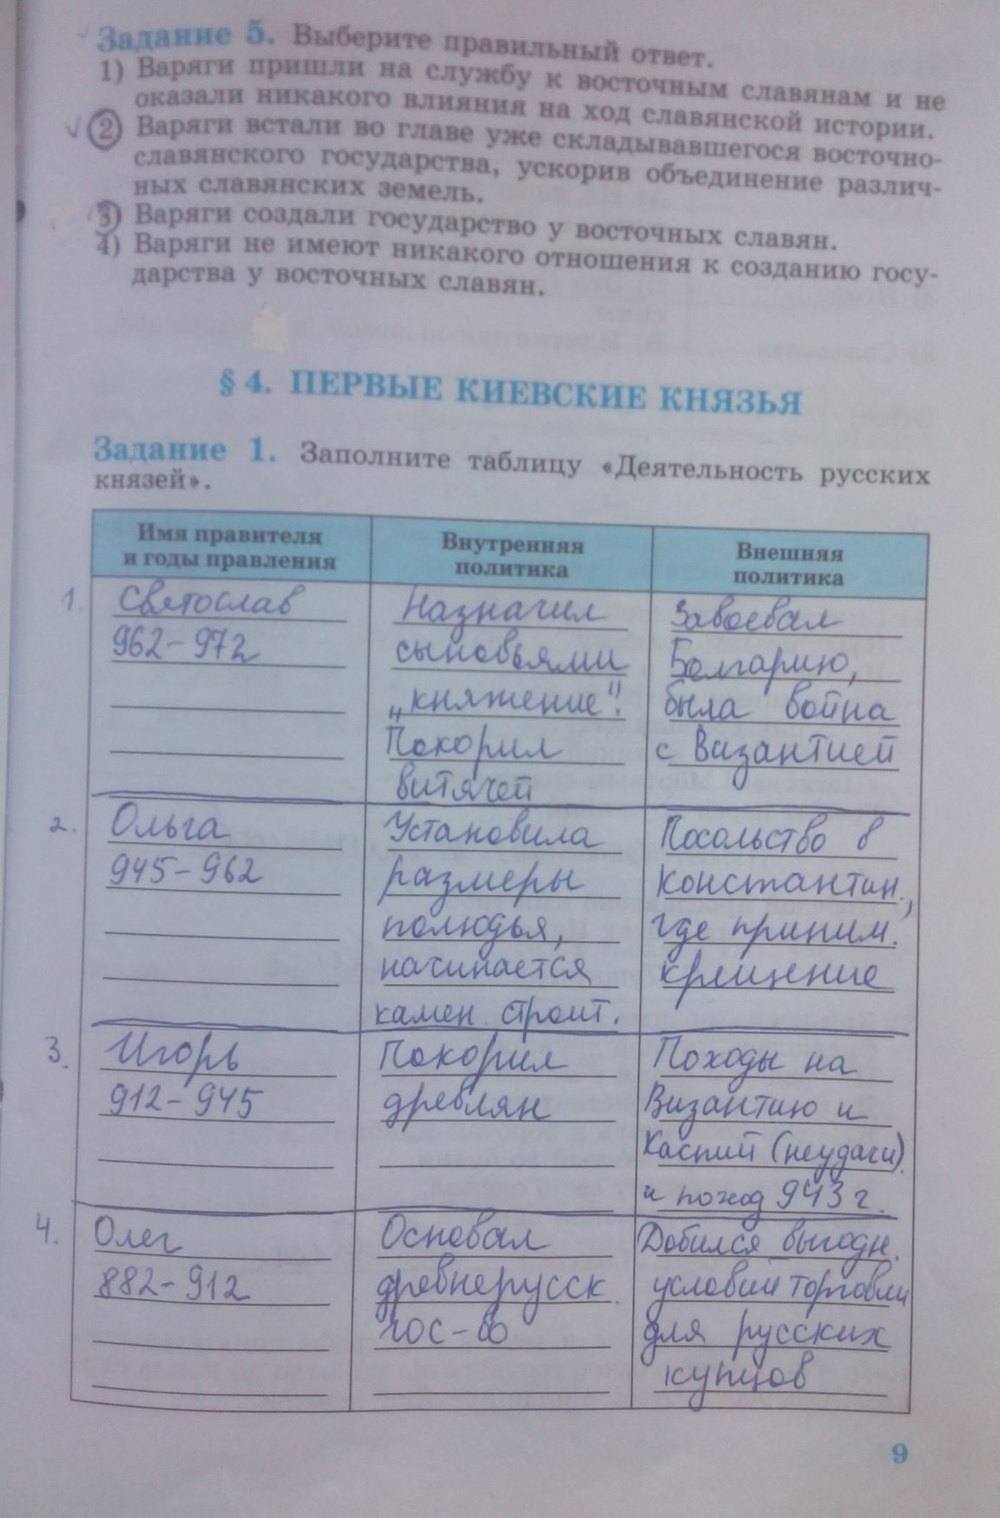 Задание 5. Выберите правильный ответ.
1) Варяги пришли на службу к восточным славянам и не
оказали никакого влияния на ход славянской истории.
2) Варяги встали во главе уже складывавшегося восточно-
славянского государства, ускорив объединение различ-
ных славянских земель.
3) Варяги создали государство у восточных славян.
4) Варяги не имеют никакого отношения к созданию госу-
дарства у восточных славян.
§ 4. ПЕРВЫЕ КИЕВСКИЕ КНЯЗЬЯ
Задание 1. Заполните таблицу «Деятельность русских
князей».
Имя правителя
и годы правления
Внутренняя
политика
Внешняя
политика
1. Светослав
962-972
Назначил
сыновьями
„княжение".
Покорил
витячей
Завоевал
Болгарию,
была война
с Византией
2. Ольга
945-962
Установила
размеры
полюдья,
начинается
камен. строит.
Посольство в
Константин.,
где приним.
крещение
3. Игорь
912-945
Покорил
древлян
Походы на
Византию и
Каспий (неудачи).
и поход 943 г.
4. Олег
882-912
Основал
древнерусск.
гос-во
Добился выгодн.
условий торговли
для русских
купцов
9